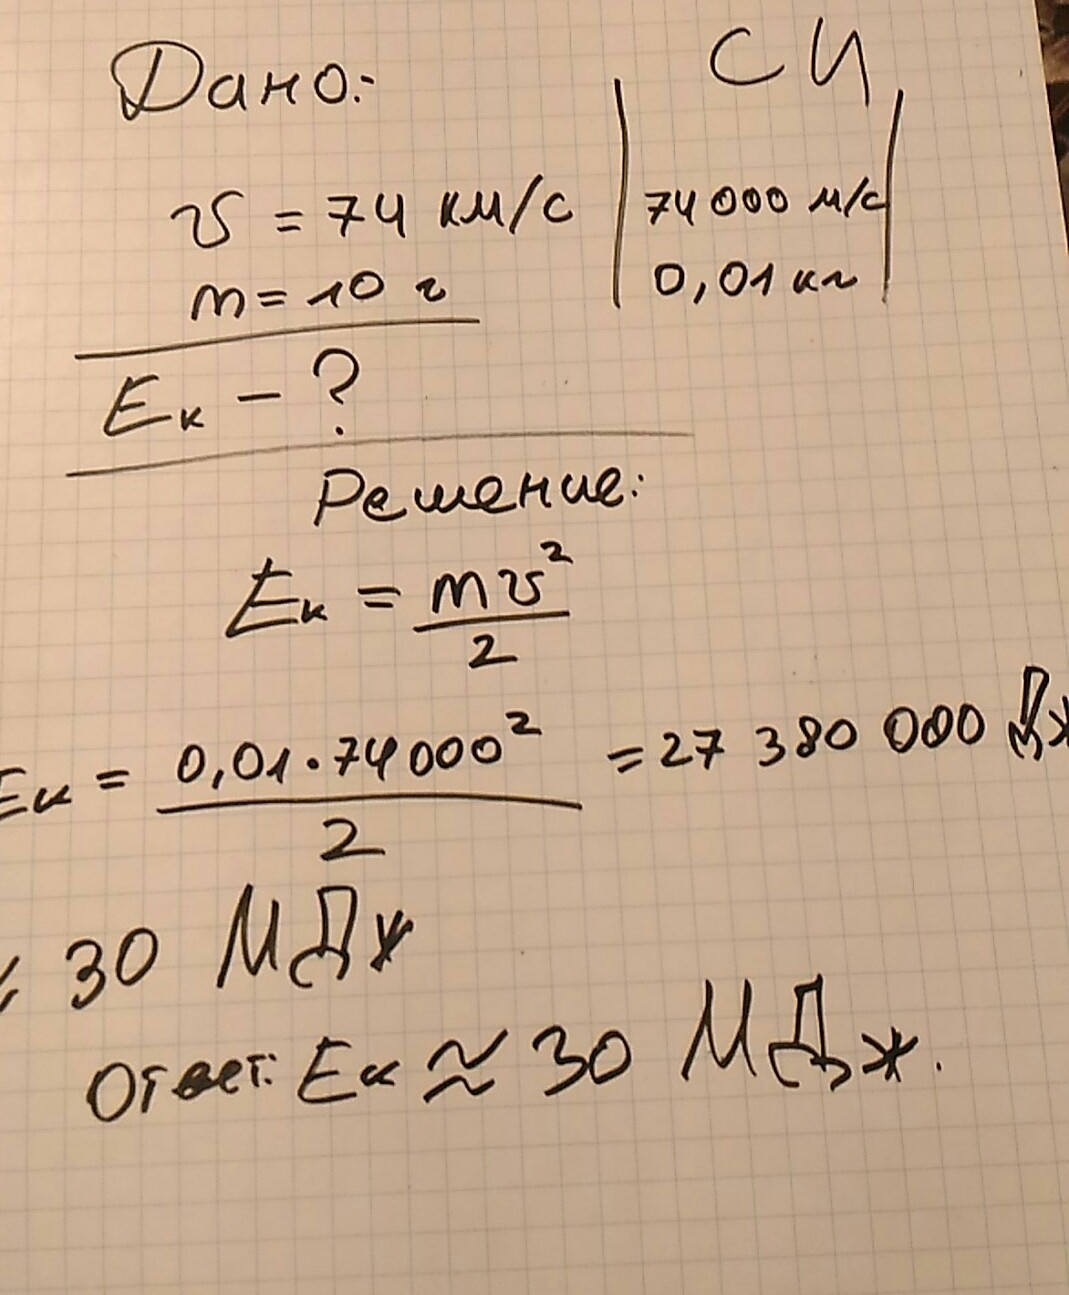 Дано:
СИ
υ = 74 км/с
74 000 м/с
m = 10 г
0,01 кг
Eк - ?
Решение:
Eк = mυ²/2
Eк = 0,01·74000²/2 = 27 380 000 Дж
≈ 30 МДж
Ответ: Eк ≈ 30 МДж.